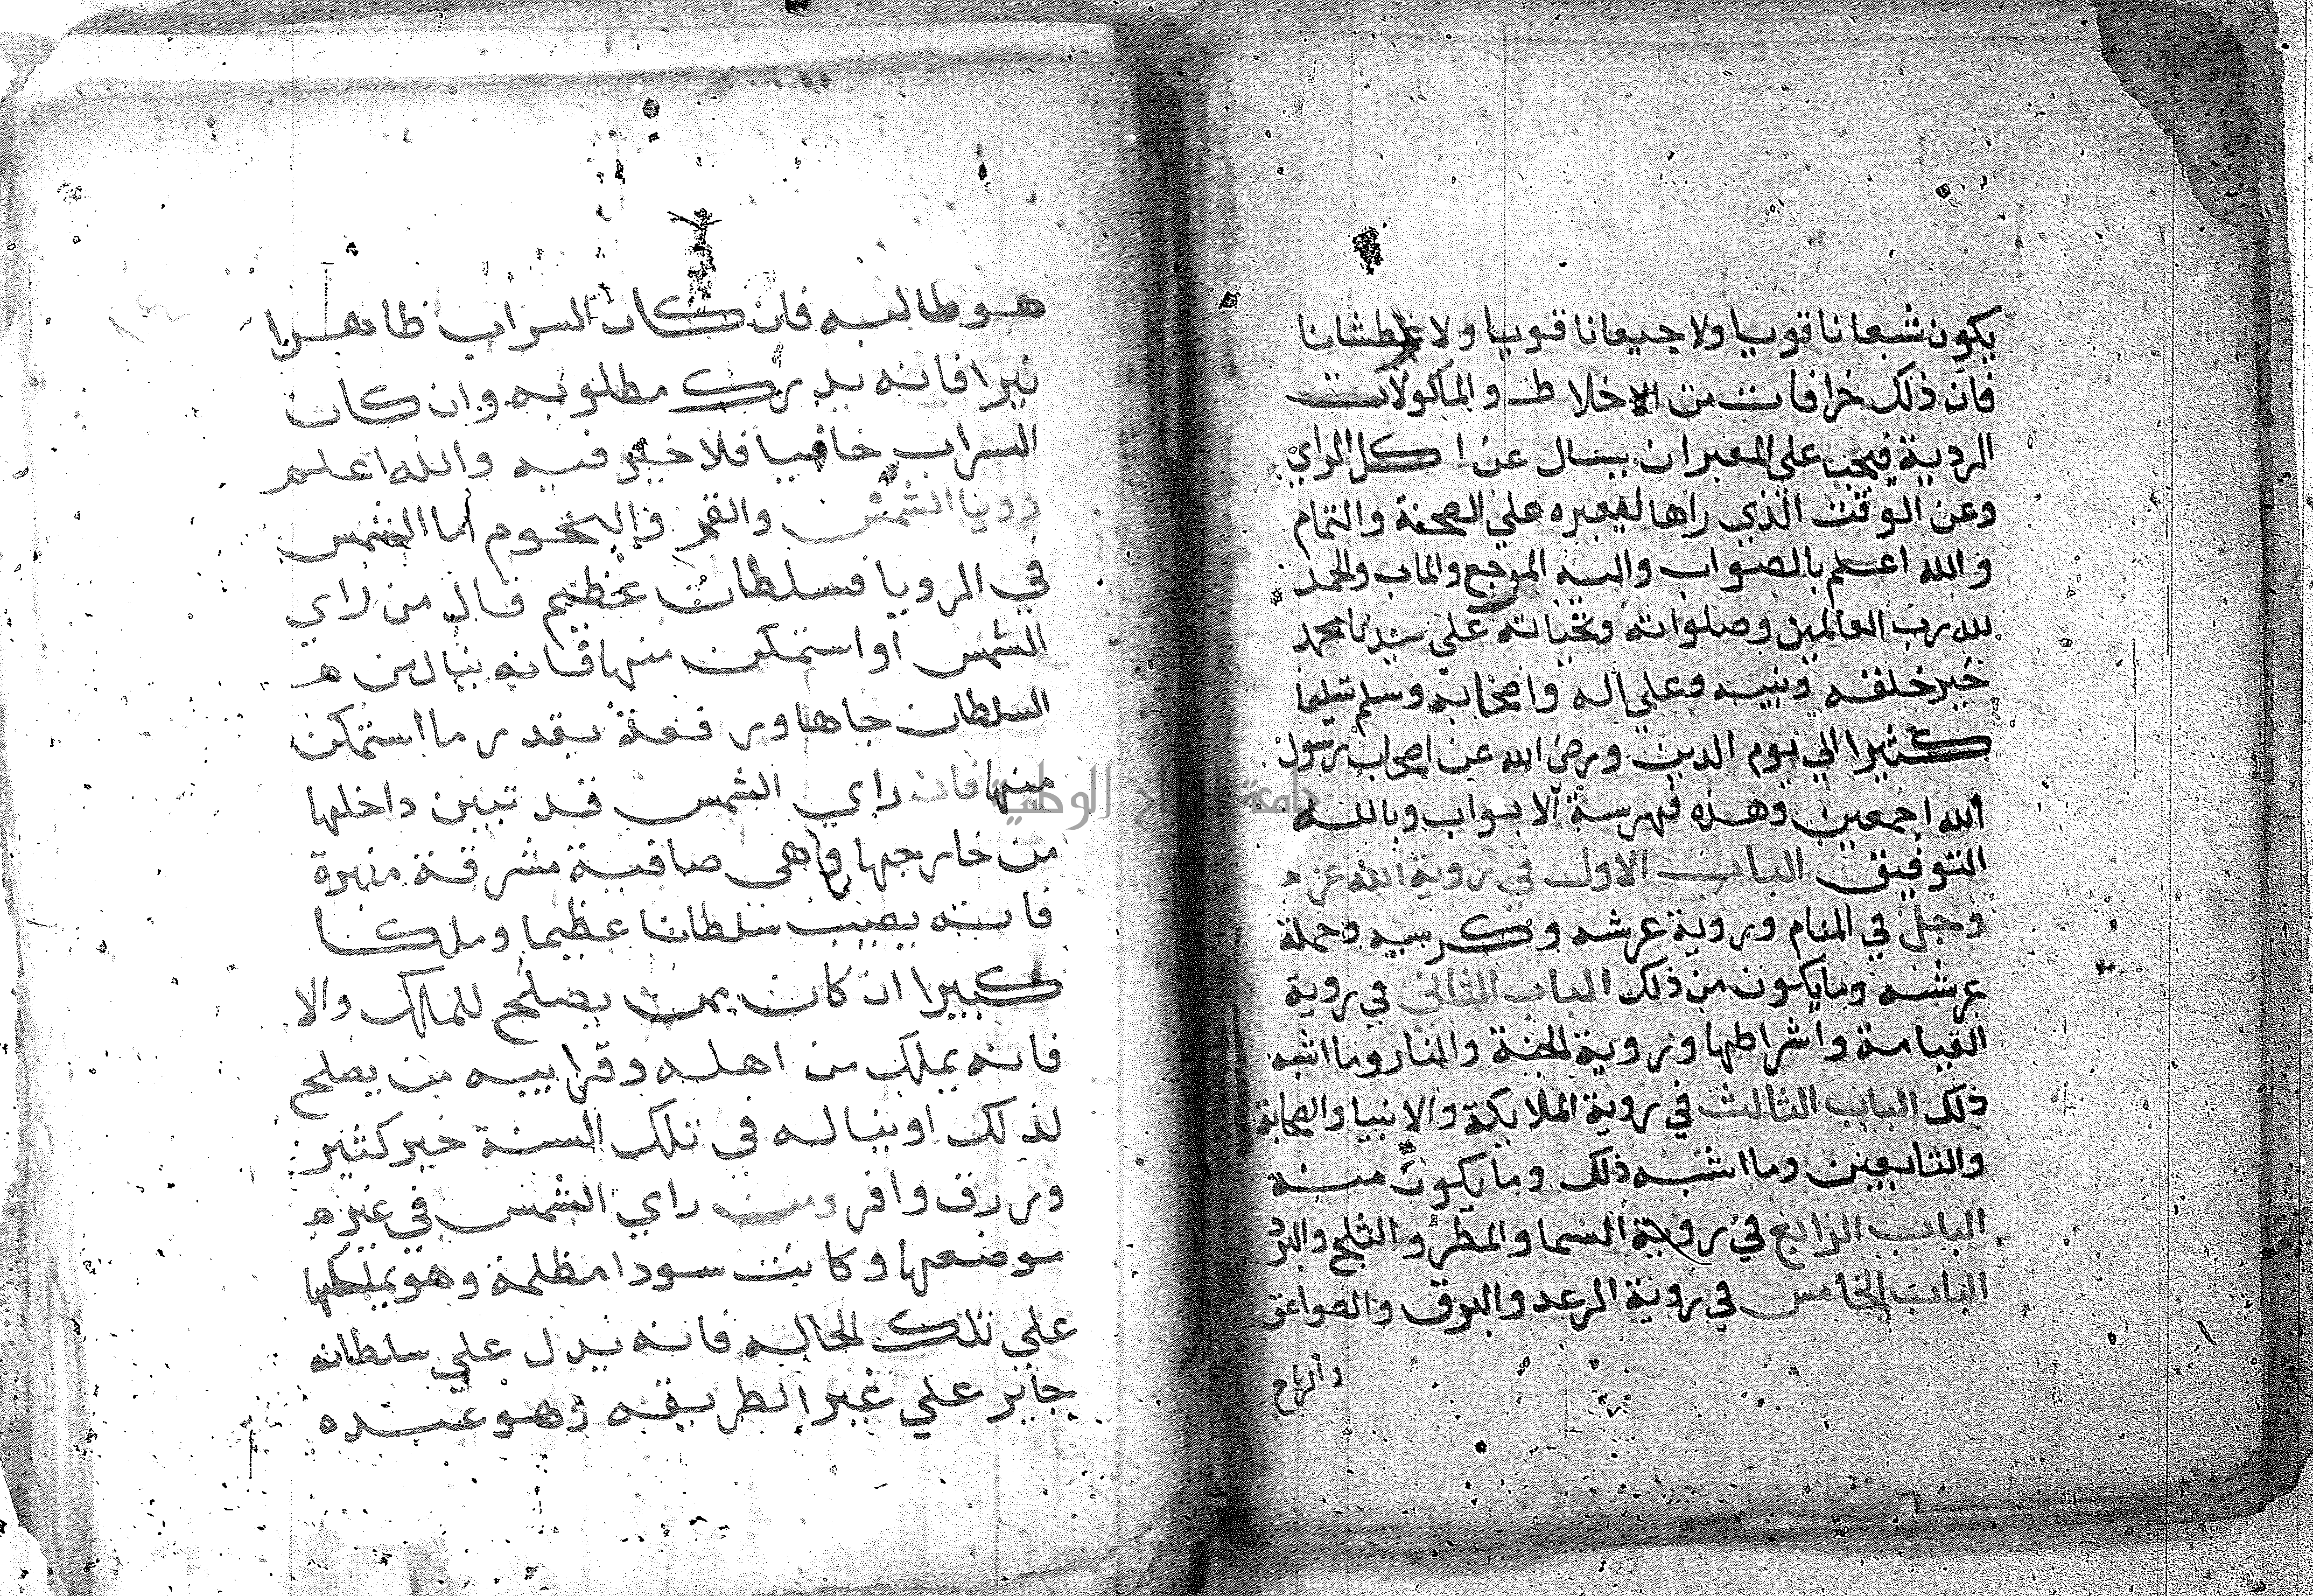 يكون شبعانا قويا ولا جيعانا قويا ولا عطشانا
فان ذلك خرافات من الاخلاط والماكولات
الردية فيجب علي المعبر ان يسال عن اكل الراي
وعن الوقت الذي راها ليعبره علي الصحة والتمام
والله اعلم بالصواب واليه المرجع والماب والحمد
لله رب العالمين وصلواته وتحياته علي سيدنا محمد
خير خلقه ونبيه وعلي اله واصحابه وسلم تسليما
كثيرا الي يوم الدين ورضي الله عن اصحاب رسول
الله اجمعين وهذه فهرسة الابواب وبالله
التوفيق الباب الاول في روية الله عز
وجل في المنام وروية عرشه وكرسيه وحملة
عرشه وما يكون من ذلك الباب الثاني في روية
القيامة واشراطها وروية الجنة والنار وما اشبه
ذلك الباب الثالث في روية الملايكة والانبيا والصحابة
والتابعين وما اشبه ذلك وما يكون منه
الباب الرابع في روية السما والمطر والثلج والبرد
الباب الخامس في روية الرعد والبرق والصواعق
والرياح
هو طالبه فان كان السراب ظاهرا
نيرا فانه يدرك مطلوبه وان كان
السراب خافيا فلا خير فيه والله اعلم
رويا الشمس والقمر والنجوم اما الشمس
في الرويا فسلطان عظيم قال من راي
الشمس او استمكن منها فانه ينال من
السلطان جاها ورفعة بقدر ما استمكن
منها فان راي الشمس قد تبين داخلها
من خارجها وهي صافية مشرقة منيرة
فانه يصيب سلطانا عظيما وملكا
كبيرا ان كان ممن يصلح للملك والا
فانه يملك من اهله وقرابيه من يصلح
لذلك او ينال في تلك السنة خير كثير
ورزق وافر ومن راي الشمس في غير
موضعها وكانت سودا مظلمة وهو يملكها
علي تلك الحاله فانه يدل علي سلطانه
جاير علي غير الطريقه وهو عنده